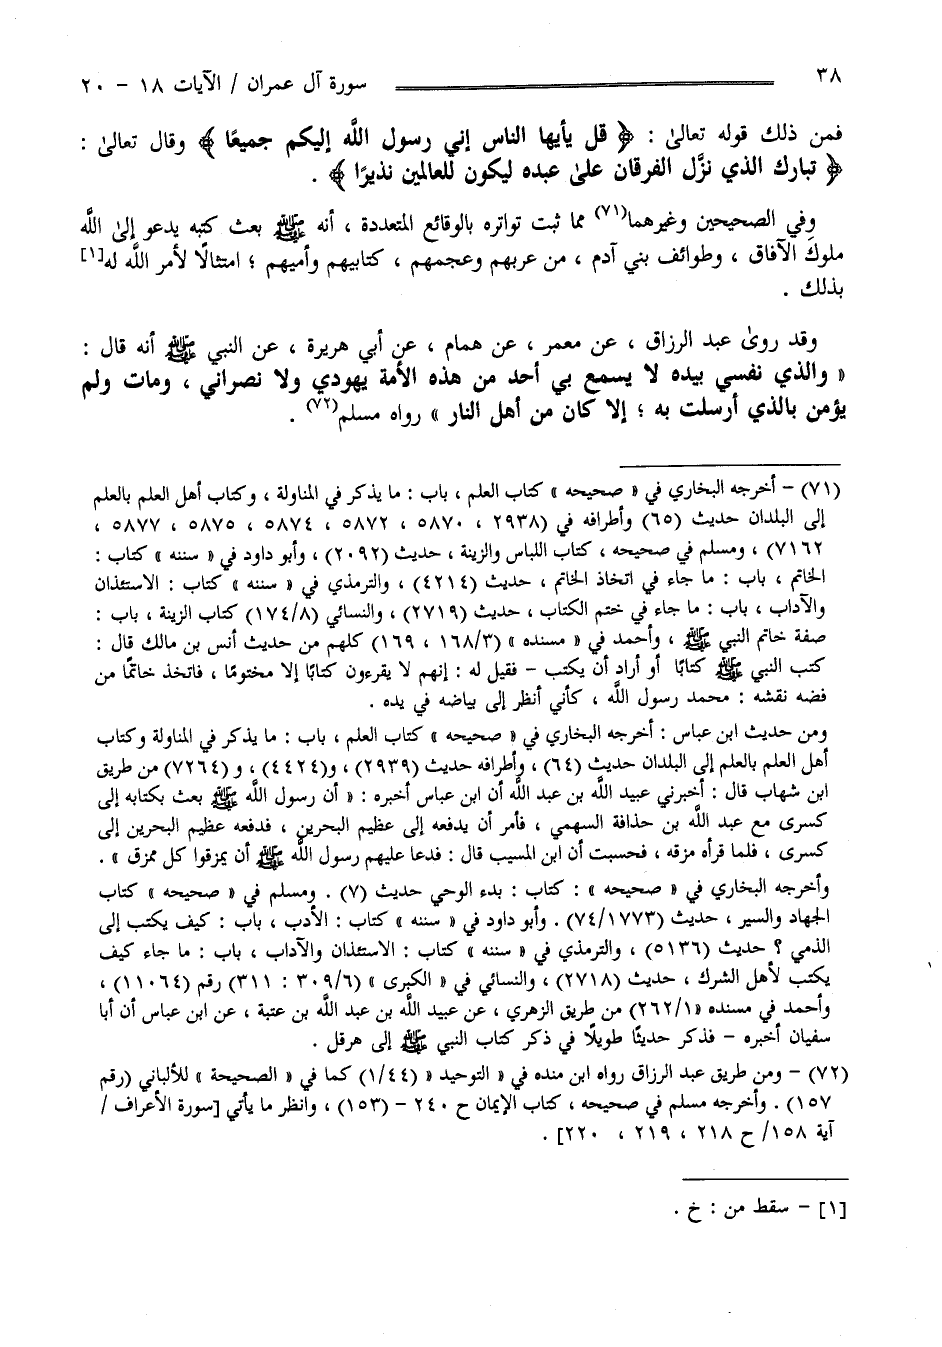 ٣٨ سورة آل عمران / الآيات ١٨ - ٢٠
فمن ذلك قوله تعالىٰ : ﴿ قل يأيها الناس إني رسول اللَّه إليكم جميعًا ﴾ وقال تعالىٰ :
﴿ تبارك الذي نزَّل الفرقان علىٰ عبده ليكون للعالمين نذيرًا ﴾ .
وفي الصحيحين وغيرهما(٧١) مما ثبت تواتره بالوقائع المتعددة ، أنه ﷺ بعث كتبه يدعو إلىٰ اللَّه
ملوكَ الآفاق ، وطوائف بني آدم ، من عربهم وعجمهم ، كتابيهم وأميهم ؛ امتثالًا لأمر اللَّه له[١]
بذلك .
وقد روىٰ عبد الرزاق ، عن معمر ، عن همام ، عن أبي هريرة ، عن النبي ﷺ أنه قال :
« والذي نفسي بيده لا يسمع بي أحد من هذه الأمة يهودي ولا نصراني ، ومات ولم
يؤمن بالذي أرسلت به ؛ إلا كان من أهل النار » رواه مسلم(٧٢) .
(٧١) - أخرجه البخاري في « صحيحه » كتاب العلم ، باب : ما يذكر في المناولة ، وكتاب أهل العلم بالعلم
إلى البلدان حديث (٦٥) وأطرافه في (٢٩٣٨ ، ٥٨٧٠ ، ٥٨٧٢ ، ٥٨٧٤ ، ٥٨٧٥ ، ٥٨٧٧ ،
٧١٦٢) ، ومسلم في صحيحه ، كتاب اللباس والزينة ، حديث (٢٠٩٢) ، وأبو داود في « سننه » كتاب :
الخاتم ، باب : ما جاء في اتخاذ الخاتم ، حديث (٤٢١٤) ، والترمذي في « سننه » كتاب : الاستئذان
والآداب ، باب : ما جاء في ختم الكتاب ، حديث (٢٧١٩) ، والنسائي (١٧٤/٨) كتاب الزينة ، باب :
صفة خاتم النبي ﷺ ، وأحمد في « مسنده » (١٦٨/٣ ، ١٦٩) كلهم من حديث أنس بن مالك قال :
كتب النبي ﷺ كتابًا أو أراد أن يكتب - فقيل له : إنهم لا يقرءون كتابًا إلا مختومًا ، فاتخذ خاتمًا من
فضه نقشه : محمد رسول اللَّه ، كأني أنظر إلى بياضه في يده .
ومن حديث ابن عباس : أخرجه البخاري في « صحيحه » كتاب العلم ، باب : ما يذكر في المناولة وكتاب
أهل العلم بالعلم إلى البلدان حديث (٦٤) ، وأطرافه حديث (٢٩٣٩) ، و(٤٤٢٤) ، و (٧٢٦٤) من طريق
ابن شهاب قال : أخبرني عبيد اللَّه بن عبد اللَّه أن ابن عباس أخبره : « أن رسول اللَّه ﷺ بعث بكتابه إلى
كسرى مع عبد اللَّه بن حذافة السهمي ، فأمر أن يدفعه إلى عظيم البحرين ، فدفعه عظيم البحرين إلى
كسرى ، فلما قرأه مزقه ، فحسبت أن ابن المسيب قال : فدعا عليهم رسول اللَّه ﷺ أن يمزقوا كل ممزق » .
وأخرجه البخاري في « صحيحه » : كتاب : بدء الوحي حديث (٧) . ومسلم في « صحيحه » كتاب
الجهاد والسير ، حديث (٧٤/١٧٧٣) . وأبو داود في « سننه » كتاب : الأدب ، باب : كيف يكتب إلى
الذمي ؟ حديث (٥١٣٦) ، والترمذي في « سننه » كتاب : الاستئذان والآداب ، باب : ما جاء كيف
يكتب لأهل الشرك ، حديث (٢٧١٨) ، والنسائي في « الكبرى » (٣٠٩/٦ : ٣١١) رقم (١١٠٦٤) ،
وأحمد في مسنده «(٢٦٢/١) من طريق الزهري ، عن عبيد اللَّه بن عبد اللَّه بن عتبة ، عن ابن عباس أن أبا
سفيان أخبره - فذكر حديثًا طويلًا في ذكر كتاب النبي ﷺ إلى هرقل .
(٧٢) - ومن طريق عبد الرزاق رواه ابن منده في « التوحيد » (١/٤٤) كما في « الصحيحة » للألباني (رقم
١٥٧) . وأخرجه مسلم في صحيحه ، كتاب الإيمان ح ٢٤٠ - (١٥٣) ، وانظر ما يأتي [سورة الأعراف /
آية ١٥٨/ ح ٢١٨ ، ٢١٩ ، ٢٢٠] .
[١] - سقط من : خ .